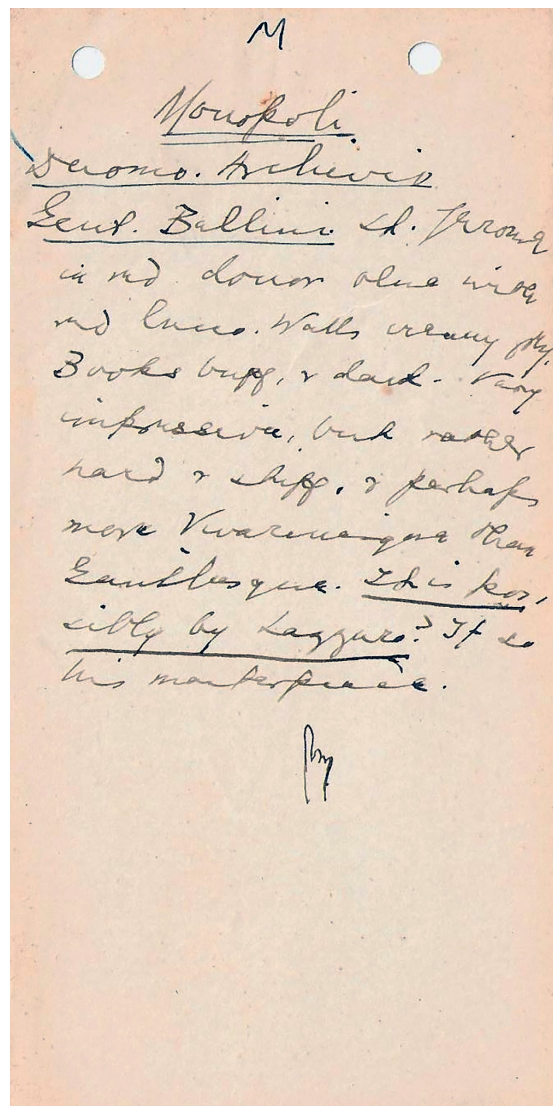 M
Monopoli
Duomo. Archivio
Gent. Bellini St. Jerome
in red donor olive with
red lucco. Walls creamy gray,
Books buff, & dark. Very
impressive, but rather
hard & stiff, & perhaps
more Vivarinesque than
Gentilesque. It is pos,
sibly by Lazzaro? If so
his masterpiece.